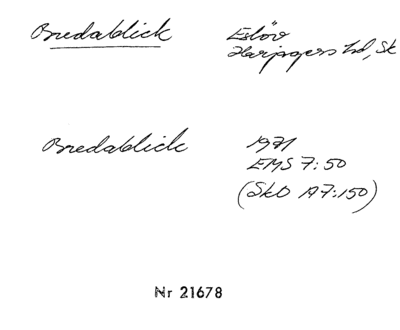 Bredablick Eslöv
Harjagers hd, Sk
Bredablick 1971
EMS 7:50
(SkO A7:150)
Nr 21678